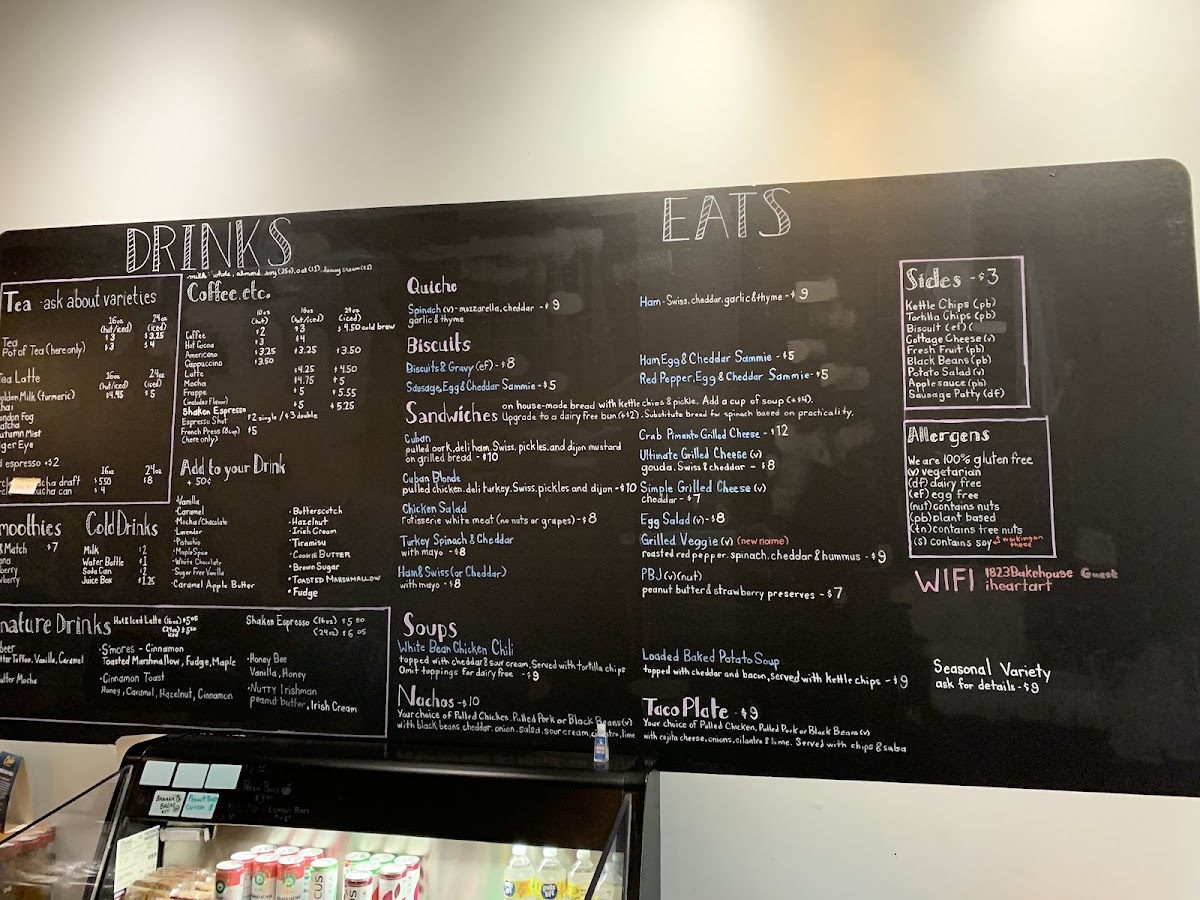 DRINKS
milk: whole, almond, soy (.75¢), oat ($1), heavy cream ($2)
Tea - ask about varieties
16oz (hot/iced) 24oz (iced)
Tea $3 $3.25
Pot of Tea (here only) $3 $4
Tea Latte
16oz (hot/iced) 24oz (iced)
Golden Milk (turmeric) $4.95 $5
Chai
London Fog
Matcha
Autumn Mist
Tiger Eye
espresso +$2
16oz 24oz
draft $5.50 $8
can $4
Coffee, etc.
10oz (hot) 16oz (hot/iced) 24oz (iced)
Coffee $2 $3 $4.50 cold brew
Hot Cocoa $3 $4
Americano $3.25 $3.25 $3.50
Cappuccino $3.50
Latte $4.25 $4.50
Mocha $4.75 $5
Frappe $5 $5.55
(includes flavor)
Shaken Espresso $5 $5.25
Espresso Shot $2 single / $3 double
French Press (8cup) $5
(here only)
Add to your Drink
+ 50¢
·Vanilla
·Caramel
·Mocha/Chocolate
·Lavender
·Pistachio
·Maple Spice
·White Chocolate
·Sugar Free Vanilla
·Caramel Apple Butter
·Butterscotch
·Hazelnut
·Irish Cream
·Tiramisu
·Cookie Butter
·Brown Sugar
·Toasted Marshmallow
·Fudge
Smoothies
Match $7
Cold Drinks
Milk $2
Water Bottle $1
Soda Can $2
Juice Box $1.25
nature Drinks
Hot & Iced Latte (16oz) $5.05
(24oz) $5.50
iced
Shaken Espresso (16oz) $5.80
(24oz) $6.05
beer
Toffee, Vanilla, Caramel
Butter Mocha
·S'mores - Cinnamon
Toasted Marshmallow, Fudge, Maple
·Cinnamon Toast
Honey, Caramel, Hazelnut, Cinnamon
·Honey Bee
Vanilla, Honey
·Nutty Irishman
peanut butter, Irish Cream
EATS
Quiche
Spinach (v) - mozzarella, cheddar - $9
garlic & thyme
Ham - Swiss, cheddar, garlic & thyme - $9
Biscuits
Biscuits & Gravy (ef) - $8
Sausage, Egg & Cheddar Sammie - $5
Ham, Egg & Cheddar Sammie - $5
Red Pepper, Egg & Cheddar Sammie - $5
Sandwiches on house-made bread with kettle chips & pickle. Add a cup of soup (+$4).
Upgrade to a dairy free bun (+$2). Substitute bread for spinach based on practicality.
Cuban
pulled pork, deli ham, Swiss, pickles, and dijon mustard
on grilled bread - $10
Cuban Blonde
pulled chicken, deli turkey, Swiss, pickles and dijon - $10
Chicken Salad
rotisserie white meat (no nuts or grapes) - $8
Turkey Spinach & Cheddar
with mayo - $8
Ham & Swiss (or Cheddar)
with mayo - $8
Crab Pimento Grilled Cheese - $12
Ultimate Grilled Cheese (v)
gouda, Swiss & cheddar - $8
Simple Grilled Cheese (v)
cheddar - $7
Egg Salad (v) - $8
Grilled Veggie (v) (new name)
roasted red pepper, spinach, cheddar & hummus - $9
PBJ (v)(nut)
peanut butter & strawberry preserves - $7
Soups
White Bean Chicken Chili
topped with cheddar & sour cream, Served with tortilla chips
Omit toppings for dairy free - $9
Loaded Baked Potato Soup
topped with cheddar and bacon, served with kettle chips - $9
Seasonal Variety
ask for details - $9
Nachos - $10
Your choice of Pulled Chicken, Pulled Pork or Black Beans (v)
with black beans, cheddar, onion, salsa, sour cream, cilantro, lime
Taco Plate - $9
Your choice of Pulled Chicken, Pulled Pork or Black Beans (v)
with cojita cheese, onions, cilantro & lime. Served with chips & salsa
Sides - $3
Kettle Chips (pb)
Tortilla Chips (pb)
Biscuit (ef)
Cottage Cheese (v)
Fresh Fruit (pb)
Black Beans (pb)
Potato Salad (v)
Applesauce (pb)
Sausage Patty (df)
Allergens
We are 100% gluten free
(v) vegetarian
(df) dairy free
(ef) egg free
(nut) contains nuts
(pb) plant based
(tn) contains tree nuts
(s) contains soy working on these
WIFI 1823Bakehouse Guest
iheartart